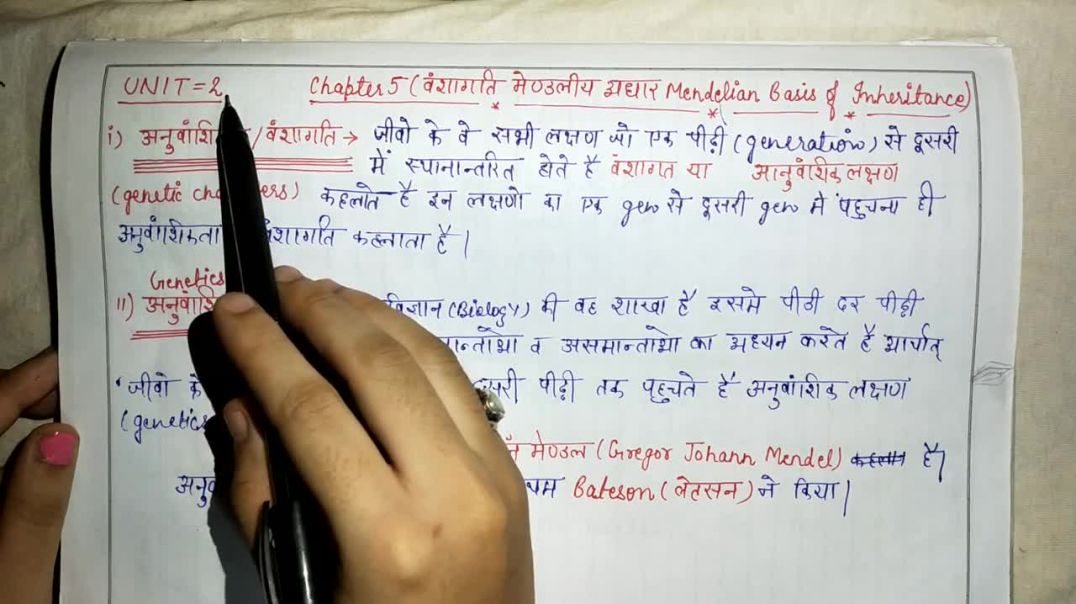 UNIT = 2 Chapter 5 (वंशागति मेण्डलीय अधार Mendelian Basis of Inheritance)
i) / वंशागति → जीवो के वे सभी लक्षण जो एक पीढ़ी (generation) से दूसरी
में स्थानान्तरित होते है वंशागत या आनुवंशिक लक्षण
(genetic कहलाते है इन लक्षणो का एक gen से दूसरी gen मे पहुचना ही
अनुवंशिकता वंशागति कहलाता है |
Genetics
ii) (Biology) की वह शाखा है इसमे पीढी दर पीढ़ी
व असमान्ताओ का अध्यन करते है अर्थात्
जीवो के पीढ़ी तक पहुचते है अनुवांशिक लक्षण
(genetics
मेण्डल (Gregor Johann Mendel) है|
Bateson (बेटसन) ने किया |